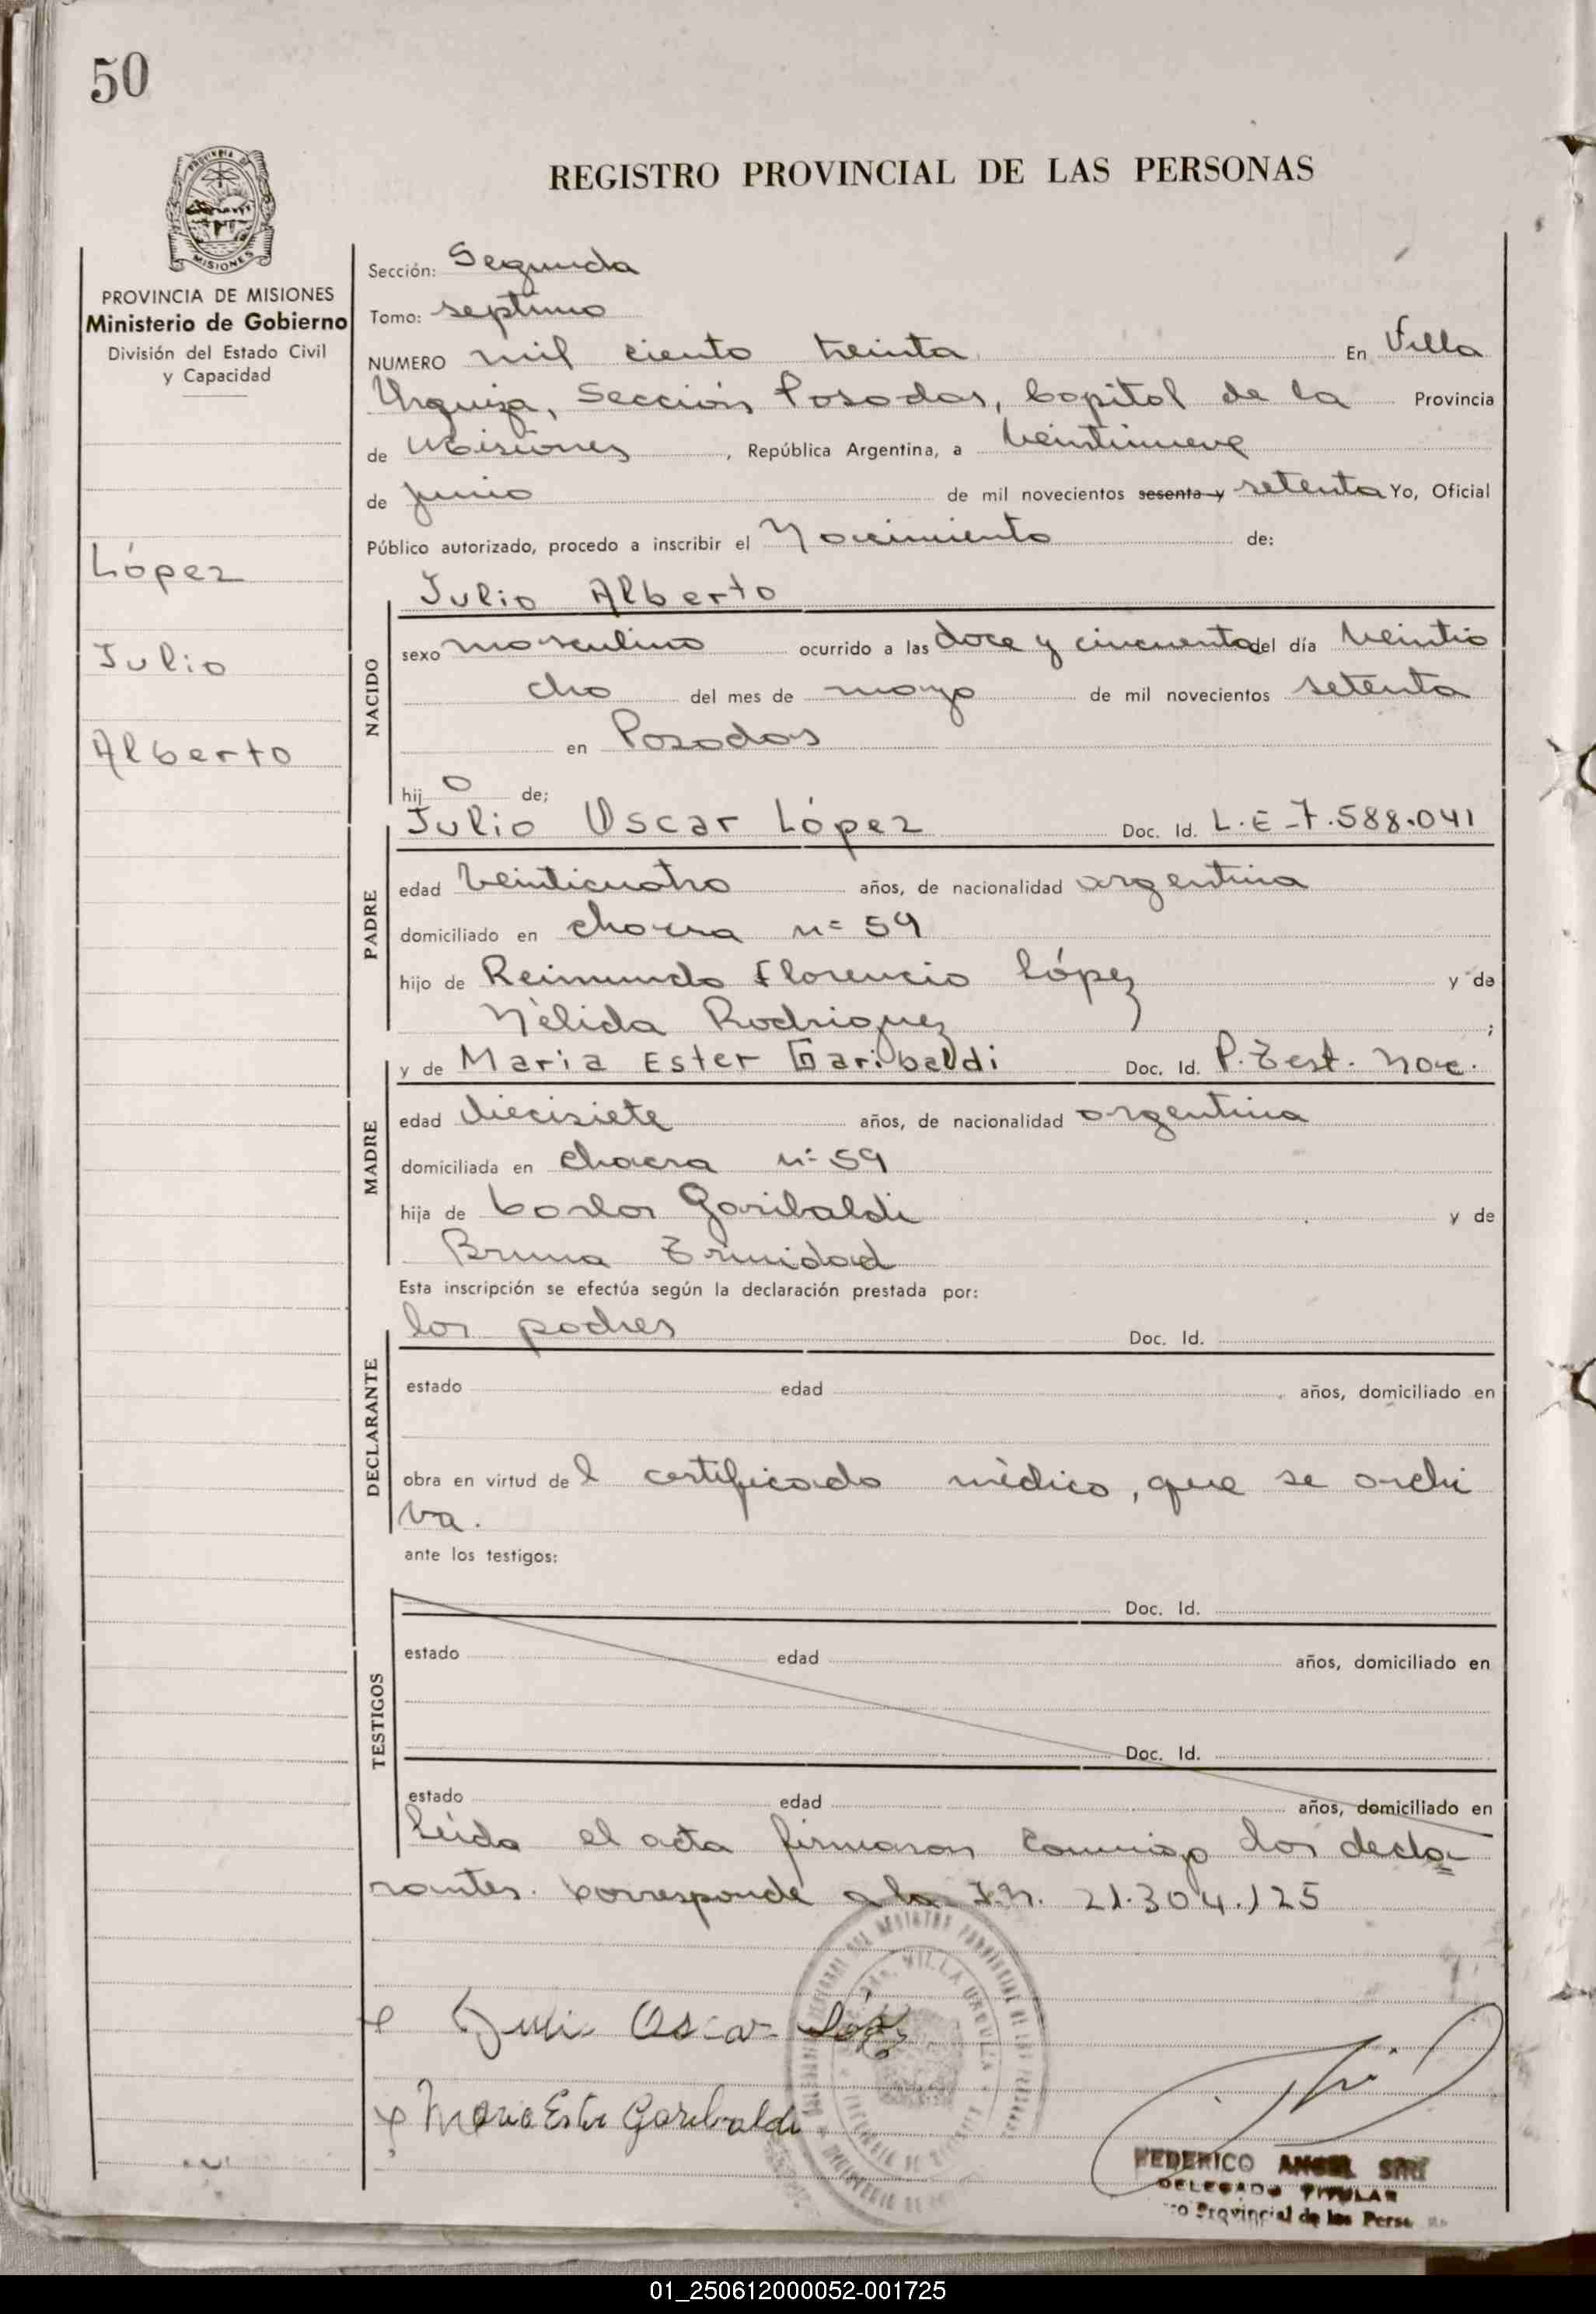 50
PROVINCIA DE
MISIONES
REGISTRO PROVINCIAL DE LAS PERSONAS
PROVINCIA DE MISIONES
Ministerio de Gobierno
División del Estado Civil
y Capacidad
López
Julio
Alberto
Sección: Segunda
Tomo: septimo
NUMERO mil ciento treinta En Villa
Urquiza, Sección Posadas, Capital de la Provincia
de Misiones, República Argentina, a veintinueve
de junio de mil novecientos sesenta y setenta Yo, Oficial
Público autorizado, procedo a inscribir el Nacimiento de:
Julio Alberto
NACIDO
sexo masculino ocurrido a las doce y cincuenta del día veintio
cho del mes de mayo de mil novecientos setenta
en Posadas
hij o de;
Julio Oscar López Doc. Id. L.E-7.588.041
PADRE
edad veinticuatro años, de nacionalidad argentina
domiciliado en chacra n= 59
hijo de Reimundo Florencio López y de
Nélida Rodriguez ;
y de Maria Ester Garibaldi Doc. Id. P.Test. Nac.
MADRE
edad diecisiete años, de nacionalidad argentina
domiciliada en chacra n= 59
hija de Carlos Garibaldi y de
Bruna Trinidad
Esta inscripción se efectúa según la declaración prestada por:
los padres Doc. Id.
DECLARANTE
estado edad años, domiciliado en
obra en virtud de l certificado médico, que se archi
va.
ante los testigos:
Doc. Id.
TESTIGOS
estado edad años, domiciliado en
Doc. Id.
estado edad años, domiciliado en
Leida el acta firmaron conmigo los decla=
rantes. Corresponde a la I.N. 21.304.125
Julio Oscar López
Maria Ester Garibaldi
VILLA URQUIZA
FEDERICO ANGEL
DELEGADO TITULAR
Provincial de las
01_250612000052-001725